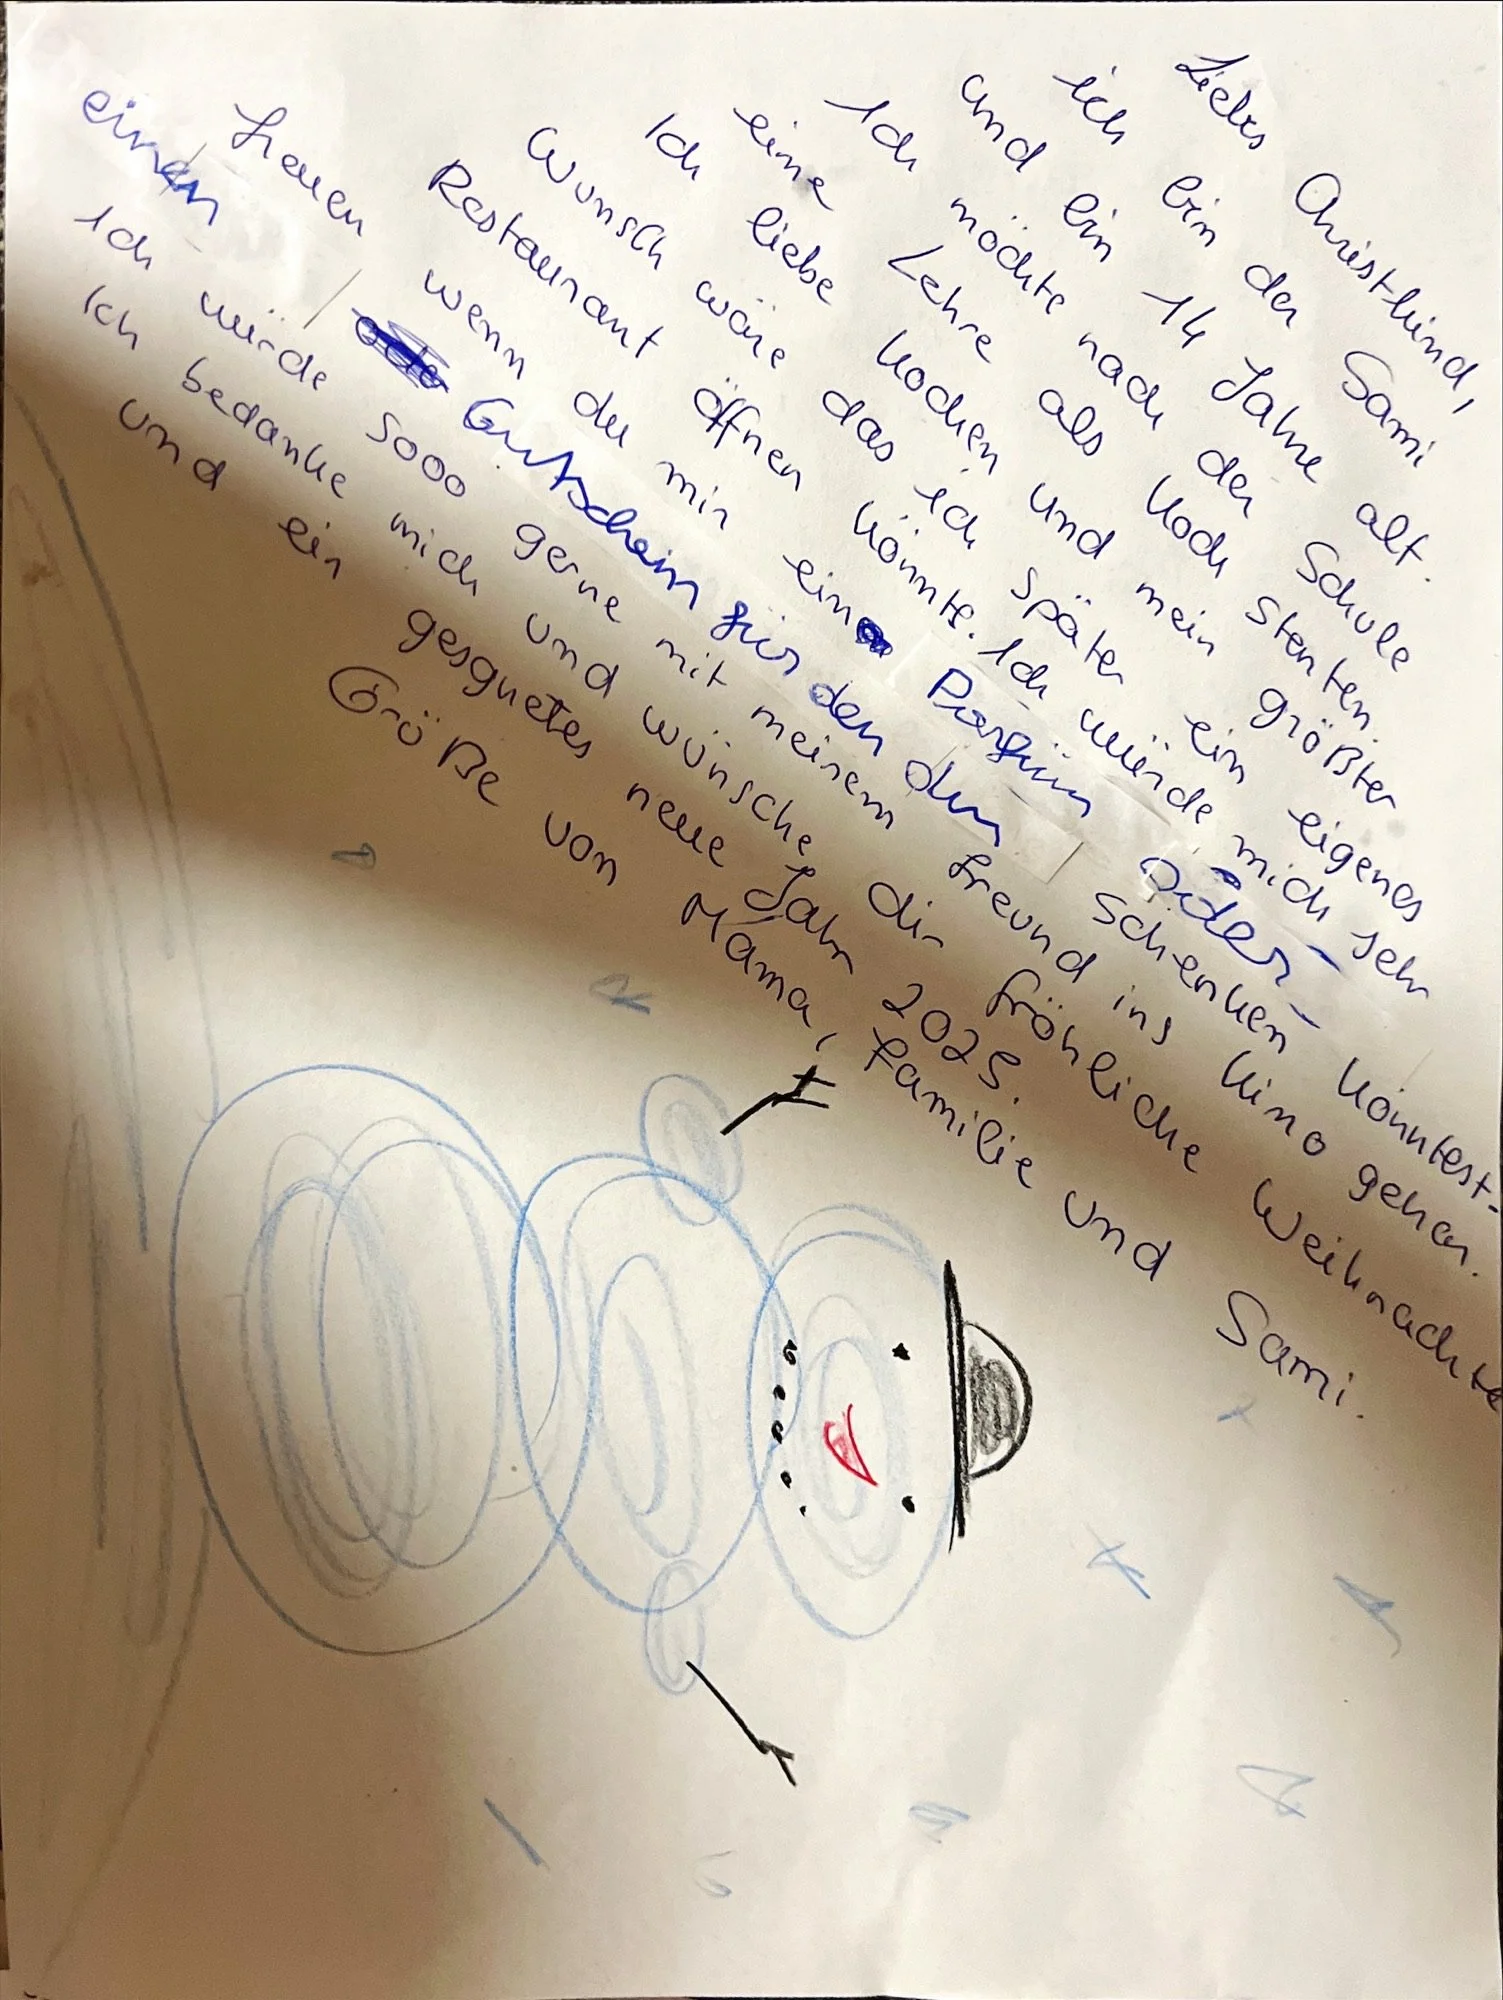 Liebs Christkind,
ich bin der Sami
und bin 14 Jahre alt.
Ich möchte nach der Schule
eine Lehre als Koch stenten.
Ich liebe kochen und mein größter
Wunsch wäre das ich später ein eigenes
Restaurant öffnen könnte. Ich würde mich sehr
freuen wenn du mir ein Parfüm Oder-
einen / Gutschein für den dm schenken könntest-
Ich würde sooo gerne mit meinem Freund ins Kino gehen.
Ich bedanke mich und wünsche dir fröhliche Weihnachte
und ein gesgnetes neue Jahr 2025.
Größe von Mama, Familie und Sami.